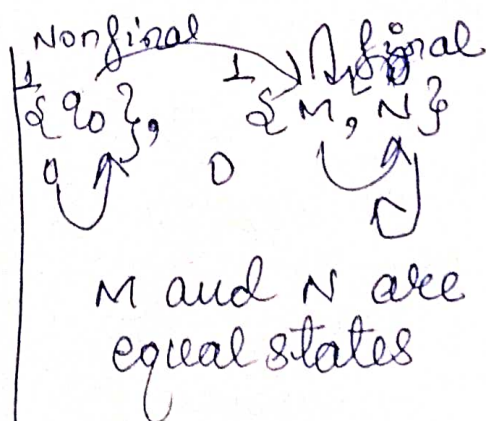 Nonfinal final
1 1
{q₀}, {M, N}
0 0
M and N are
equal states